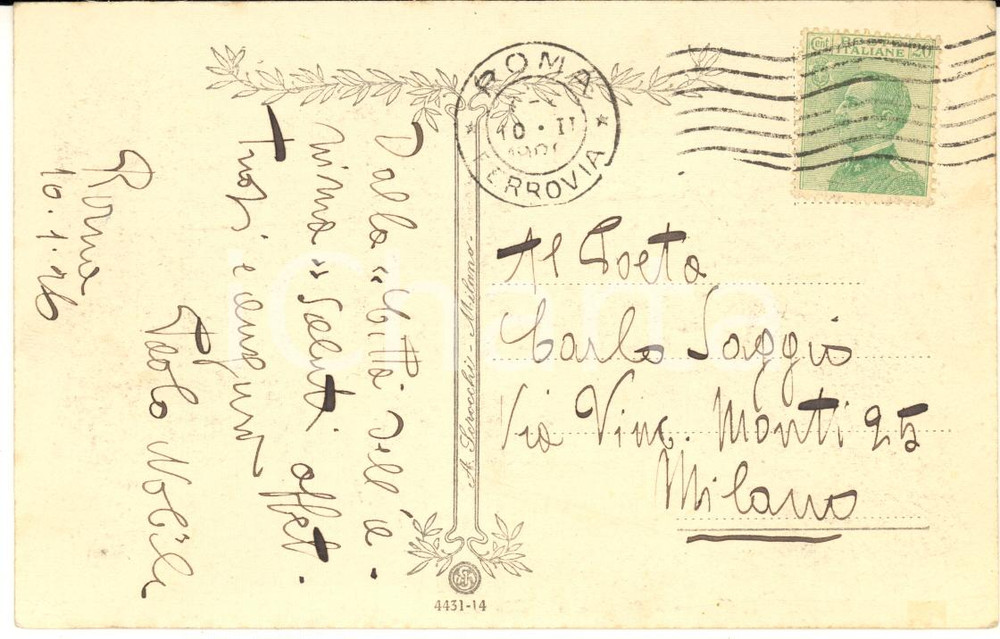 Cent POSTE ITALIANE 20
ROMA
10 · II
FERROVIA
Dalla "Città dell'a-
nima" Saluti affet-
tuosi e auguri
Paolo Nobile
Roma
10.1.26
A. Scrocchi - Milano.
4431-14
Al Poeta
Carlo Saggio
Via Vinc. Monti 25
Milano
iCharta